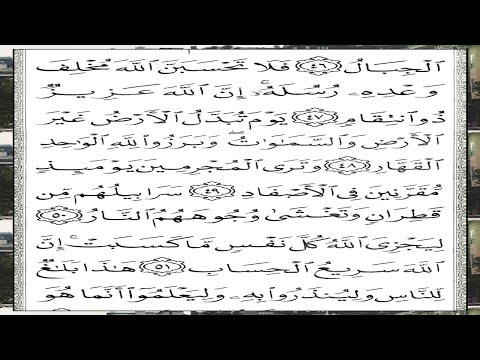 ٱلْجِبَالُ ٤٦ فَلَا تَحْسَبَنَّ ٱللَّهَ مُخْلِفَ
وَعْدِهِۦ رُسُلَهُۥٓ ۗ إِنَّ ٱللَّهَ عَزِيزٌ
ذُو ٱنتِقَامٍ ٤٧ يَوْمَ تُبَدَّلُ ٱلْأَرْضُ غَيْرَ
ٱلْأَرْضِ وَٱلسَّمَٰوَٰتُ ۖ وَبَرَزُوا۟ لِلَّهِ ٱلْوَٰحِدِ
ٱلْقَهَّارِ ٤٨ وَتَرَى ٱلْمُجْرِمِينَ يَوْمَئِذٍ
مُّقَرَّنِينَ فِى ٱلْأَصْفَادِ ٤٩ سَرَابِيلُهُم مِّن
قَطِرَانٍ وَتَغْشَىٰ وُجُوهَهُمُ ٱلنَّارُ ٥٠
لِيَجْزِىَ ٱللَّهُ كُلَّ نَفْسٍ مَّا كَسَبَتْ ۚ إِنَّ
ٱللَّهَ سَرِيعُ ٱلْحِسَابِ ٥١ هَٰذَا بَلَٰغٌ
لِّلنَّاسِ وَلِيُنذَرُوا۟ بِهِۦ وَلِيَعْلَمُوٓا۟ أَنَّمَا هُوَ